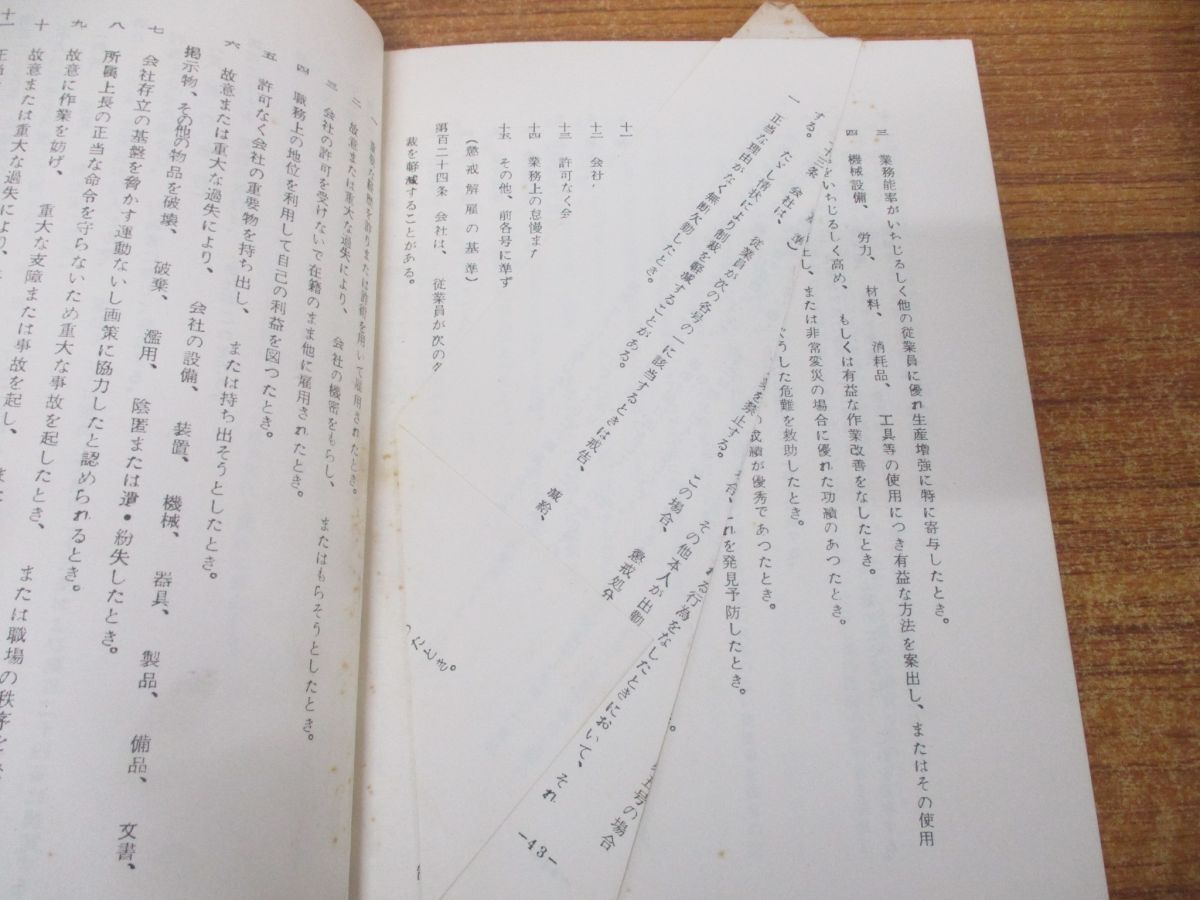 三 業務能率がいちじるしく他の従業員に優れ生産増強に特に寄与したとき。
四 機械設備、労力、材料、消耗品、工具等の使用につき有益な方法を案出し、またはその使用
をいちじるしく高め、もしくは有益な作業改善をなしたとき。
し、または非常変災の場合に優れた功績のあつたとき。
うした危難を救助したとき。
これを発見予防したとき。
績が優秀であつたとき。
を禁止する。
る行為をなしたときにおいて、それ
その他本人が出勤
五号の場合
する。ただし情状により制裁を軽減することがある。この場合、
会社は、従業員が次の各号の一に該当するときは戒告、減給、懲戒処分
一 正当な理由がなく無断欠勤したとき。
-43-
十一
十二 会社
十三 許可なく会
十四 業務上の怠慢また
十五 その他、前各号に準ず
(懲戒解雇の基準)
第百二十四条 会社は、従業員が次の
裁を軽減することがある。
つたとき。
一 を詐りまたは詐術を用いて雇用されたとき。
二 故意または重大な過失により、会社の機密をもらし、またはもらそうとしたとき。
三 会社の許可を受けないで在籍のまま他に雇用されたとき。
四 職務上の地位を利用して自己の利益を図つたとき。
五 許可なく会社の重要物を持ち出し、または持ち出そうとしたとき。
六 故意または重大な過失により、会社の設備、装置、機械、器具、製品、備品、文書、
掲示物、その他の物品を破壊、破棄、濫用、隠匿または遺・紛失したとき。
七 会社存立の基盤を脅かす運動ないし画策に協力したと認められるとき。
八 所属上長の正当な命令を守らないため重大な事故を起したとき。
九 故意に作業を妨げ、重大な支障または事故を起したとき、または職場の秩序を
十 故意または重大な過失により、
十一 正当